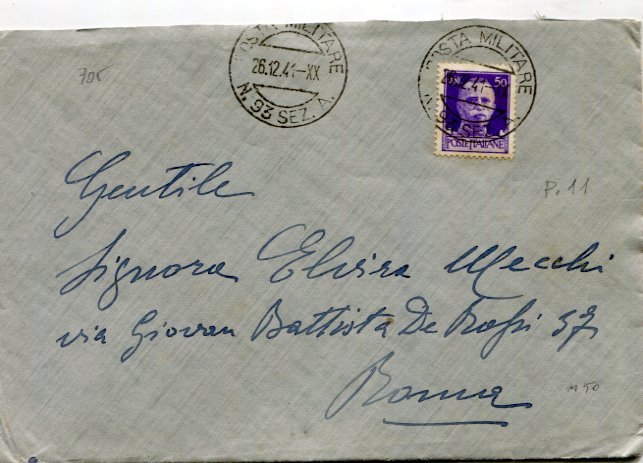 POSTA MILITARE
26.12.41-XX
N. 93 SEZ. A.
POSTA MILITARE
26.12.41
N. 93 SEZ. A.
50
POSTE ITALIANE
705
P. 11
Gentile
Signora Elvira Mecchi
via Giovan Battista De Rossi 37
Roma
M 50